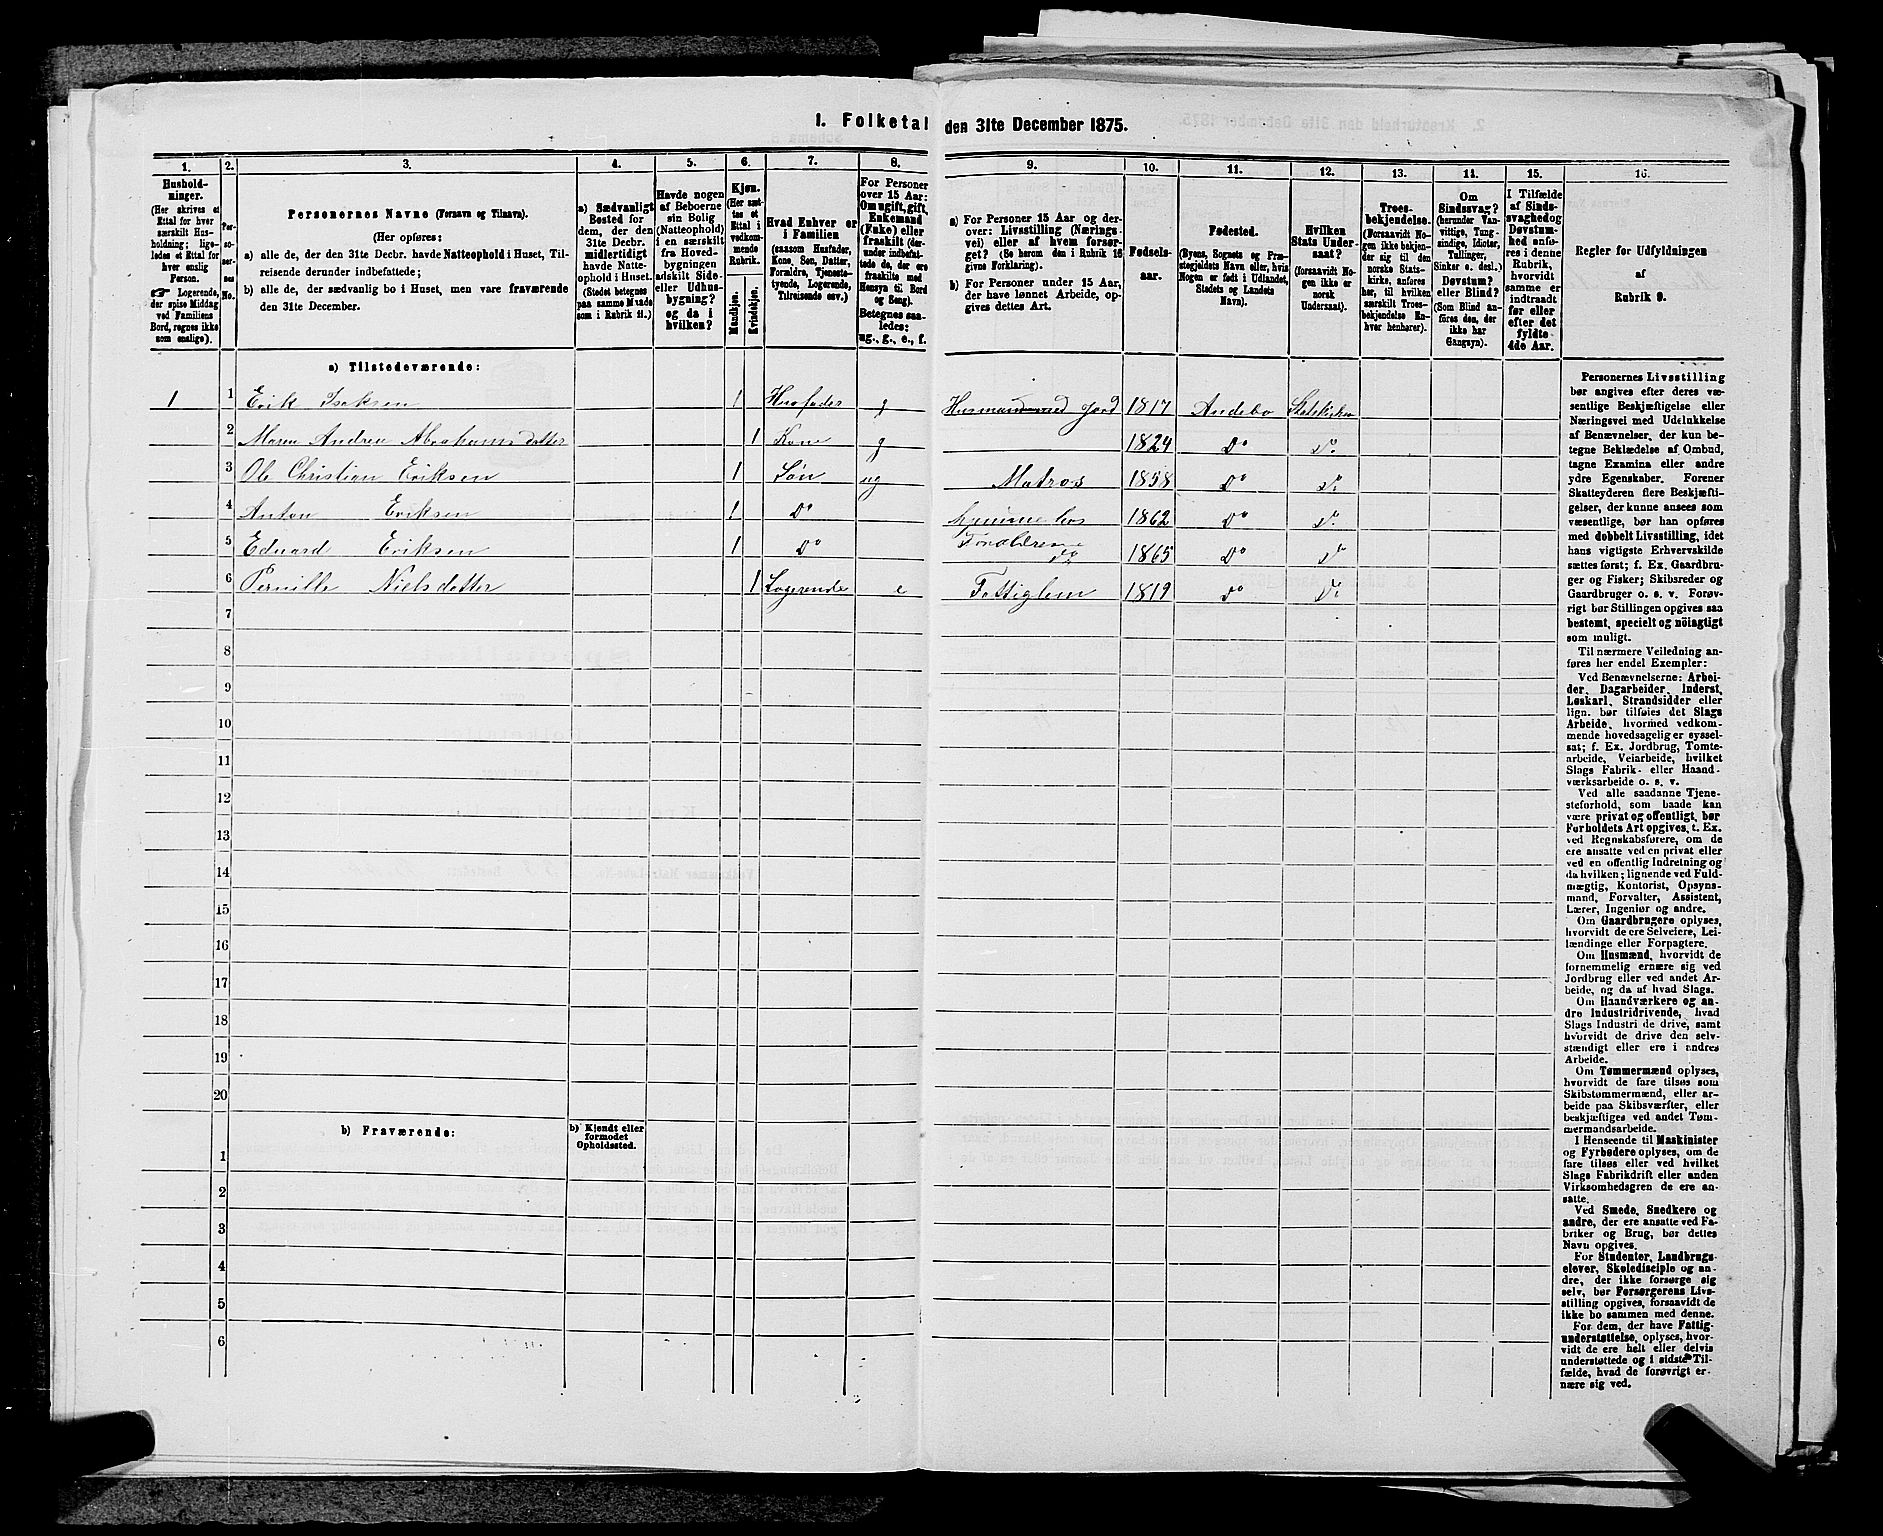 1. Folketal den 31te December 1875.
1. 2. 3. 4. 5. 6. 7. 8. 9. 10. 11. 12. 13. 14. 15. 16.
Hushold-
ninger.
(Her skrives et
Ettal for hver
særskilt Hus-
holdning; lige-
ledes et Ettal for
hver enslig
Person.
☞ Logerende,
der spise Middag
ved Familiens
Bord, regnes ikke
som enslige).
Per-
so-
ner-
nes
No.
Personernes Navne (Fornavn og Tilnavn).
(Her opføres:
a) alle de, der den 31te Decbr. havde Natteophold i Huset, Til-
reisende derunder indbefattede;
b) alle de, der sædvanlig bo i Huset, men vare fraværende
den 31te December.
a) Sædvanligt
Bosted for
dem, der den
31te Decbr.
midlertidigt
havde Natte-
ophold i Huset.
(Stedet betegnes
paa samme Maade
som i Rubrik 11.)
Havde nogen
af Beboerne
sin Bolig
(Natteophold)
i en særskilt
fra Hoved-
bygningen
adskilt Side-
eller Udhus-
bygning?
og da i
hvilken?
Kjøn.
(Her sæt-
tes et
Ettal i
vedkom-
mende
Rubrik.
Mandkjøn.
Kvindekjøn.
Hvad Enhver er
i Familien
(saasom Husfader,
Kone, Søn, Datter,
Forældre, Tjeneste-
tyende, Logerende,
Tilreisende osv.)
For Personer
over 15 Aar:
Om ugift, gift,
Enkemand
(Enke) eller
fraskilt (der-
under indbefat-
tede de, der ere
fraskilte med
Hensyn til Bord
og Seng).
Betegnes saa-
ledes:
ug., g., e., f.
a) For Personer 15 Aar og der-
over: Livsstilling (Nærings-
vei) eller af hvem forsør-
get? (Se herom den i Rubrik 16
givne Forklaring).
b) For Personer under 15 Aar,
der have lønnet Arbeide, op-
gives dettes Art.
Fødsels-
aar.
Fødested.
(Byens, Sognets og Præ-
stegjeldets Navn eller, hvis
Nogen er født i Udlandet,
Stedets og Landets
Navn).
Hvilken
Stats Under-
saat?
(forsaavidt No-
gen ikke er
norsk
Undersaat).
Troes-
bekjendelse.
(Forsaavidt No-
gen ikke bekjen-
der sig til den
norske Stats-
kirke, anføres
her, til hvilken
særskilt Troes-
bekjendelse En-
hver henhører).
Om
Sindssvag?
(herunder Van-
vittige, Tung-
sindige, Idioter,
Tullinger,
Sinker o. desl.)
Døvstum?
eller Blind?
(Som Blind an-
føres den, der
ikke har
Gangsyn).
I Tilfælde
af Sinds-
svaghed og
Døvstum-
hed anfø-
res i denne
Rubrik,
hvorvidt
samme er
indtraadt
før eller
efter det
fyldte
4de Aar.
Regler for Udfyldningen
af
Rubrik 9.
a) Tilstedeværende:
1 1 Erik Isaksen 1 Husfader g Husmand med Jord 1817 Andebo Statskirken
2 Maren Andrea Abrahamsdatter 1 Kone g 1824 Do Do
3 Ole Christian Eriksen 1 Søn ug Matros 1858 Do Do
4 Anton Eriksen 1 Do hjemme hos Forældrene 1862 Do Do
5 Edvard Eriksen 1 Do do 1865 Do Do
6 Pernille Nielsdatter 1 Logerende e Fattiglem 1819 Do Do
7
8
9
10
11
12
13
14
15
16
17
18
19
20
b) Fraværende:
b) Kjendt eller
formodet
Opholdssted.
1
2
3
4
5
6
Personernes Livsstilling
bør angives efter deres væ-
sentlige Beskjæftigelse eller
Næringsvei med Udelukkelse
af Benævnelser, der kun be-
tegne Beklædelse af Ombud,
tagne Examina eller andre
ydre Egenskaber. Forener
Skatteyderen flere Beskjæfti-
gelser, der kunne ansees som
væsentlige, bør han opføres
med dobbelt Livsstilling, idet
hans vigtigste Erhvervskilde
sættes først; f. Ex. Gaardbru-
ger og Fisker; Skibsreder og
Gaardbruger o. s. v. Forøv-
rigt bør Stillingen opgives saa
bestemt, specielt og nöiagtigt
som muligt.
Til nærmere Veiledning an-
føres her endel Exempler:
Ved Benævnelserne: Arbei-
der, Dagarbeider, Inderst,
Løskarl, Strandsidder eller
lign. bør tilføies det Slags
Arbeide, hvormed vedkom-
mende hovedsagelig er syssel-
sat; f. Ex. Jordbrug, Tomte-
arbeide, Veiarbeide, hvilket
Slags Fabrik- eller Haand-
værksarbeide o. s. v.
Ved alle saadanne Tjene-
steforhold, som baade kan
være privat og offentligt, bør
Forholdets Art opgives, t. Ex.
ved Regnskabsførere, om de
ere ansatte ved en privat eller
ved en offentlig Indretning og
da hvilken; lignende ved Fuld-
mægtig, Kontorist, Opsyns-
mand, Forvalter, Assistent,
Lærer, Ingeniør og andre.
Om Gaardbrugere oplyses,
hvorvidt de ere Selveiere, Lei-
lændinge eller Forpagtere.
Om Husmænd, hvorvidt de
fornemmelig ernære sig ved
Jordbrug eller ved andet Ar-
beide, og da af hvad Slags.
Om Haandværkere og an-
dre Industridrivende, hvad
Slags Industri de drive, samt
hvorvidt de drive den selv-
stændigt eller ere i andres
Arbeide.
Om Tømmermænd oplyses,
hvorvidt de fare tilsøs som
Skibstømmermænd, eller ar-
beide paa Skibsværfter, eller
beskjæftiges ved andet Tøm-
mermandsarbeide.
I Henseende til Maskinister
og Fyrbødere oplyses, om de
fare tilsøs eller ved hvilket
Slags Fabrikdrift eller anden
Virksomhedsgren de ere an-
satte.
Ved Smede, Snedkere og
andre, der ere ansatte ved Fa-
briker og Brug, bør dettes
Navn opgives.
For Studenter, Landbrugs-
elever, Skoledisciple og an-
dre, der ikke forsørge sig
selv, bør Forsørgerens Livs-
stilling opgives, forsaavidt de
ikke bo sammen med denne.
For dem, der have Fattig-
understøttelse, oplyses, hvor-
vidt de ere helt eller delvis
understøttede og i sidste Til-
fælde, hvad de forøvrigt er-
nære sig ved.